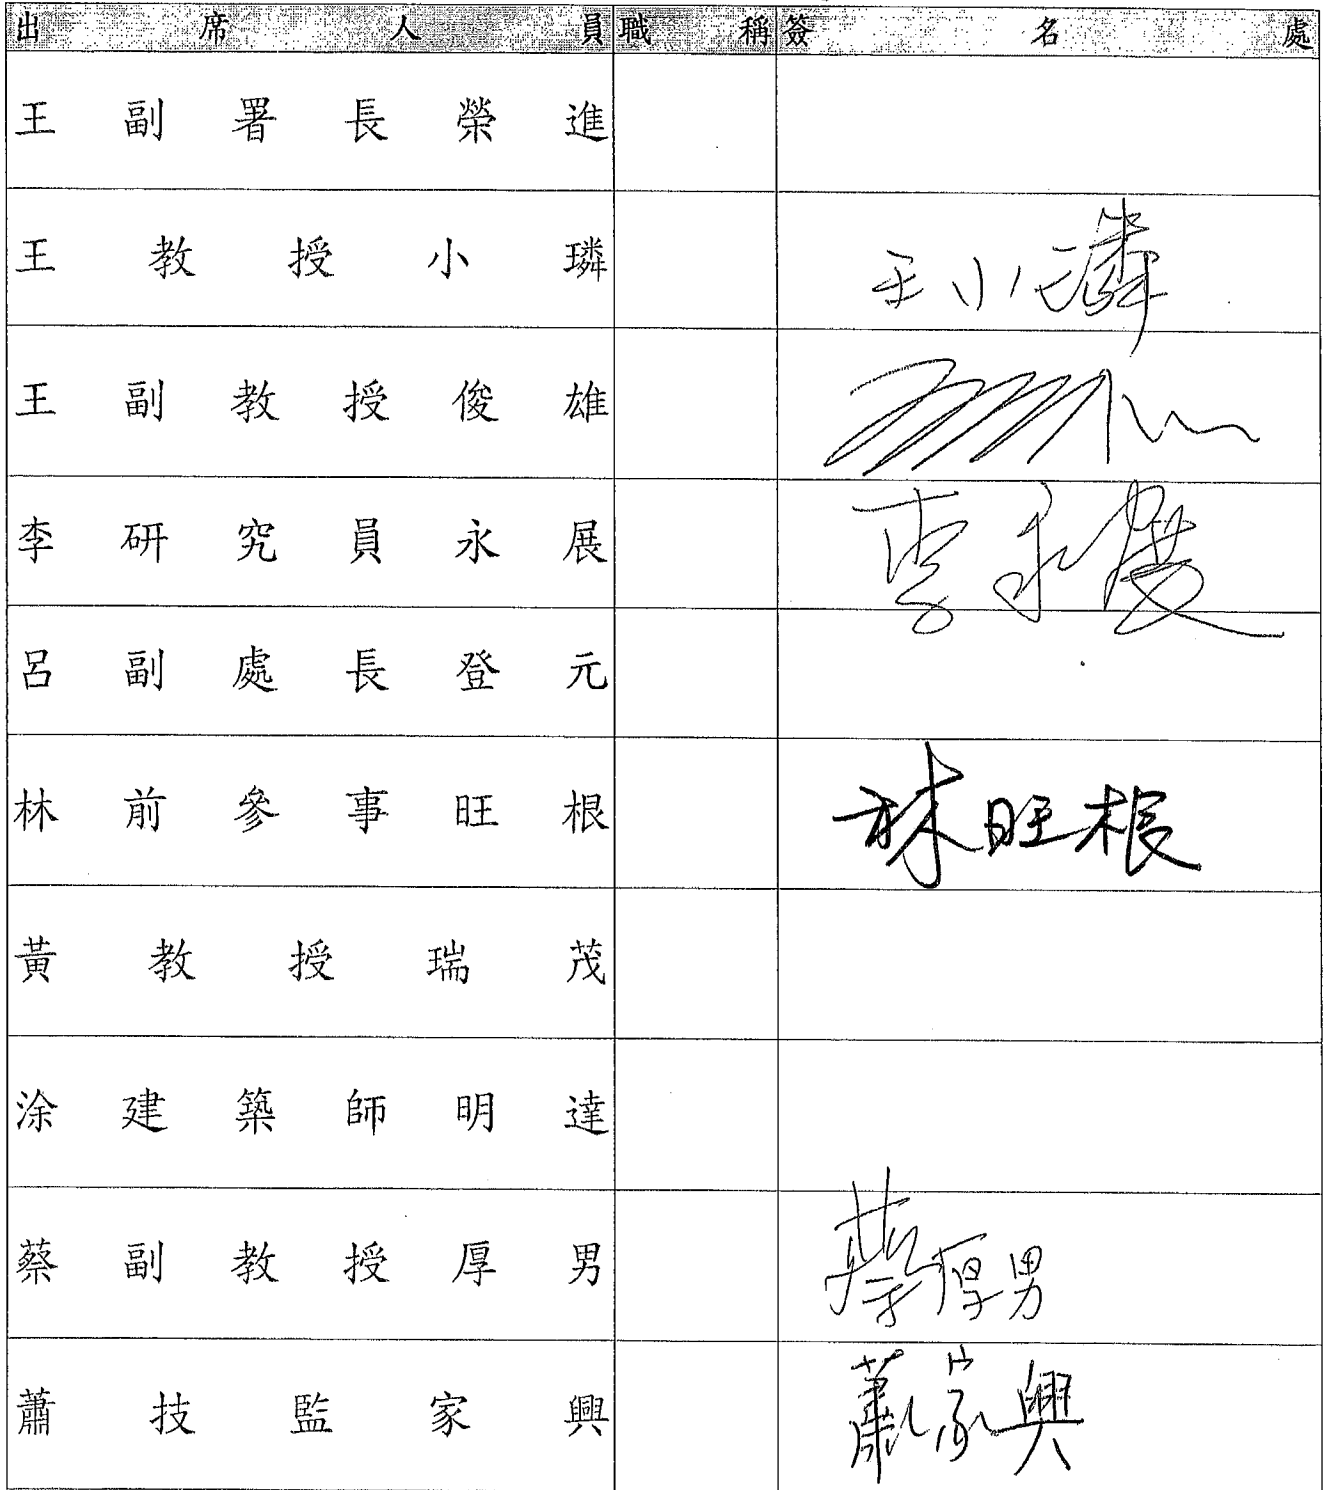 出席人員 職稱 簽名處
王副署長榮進
王教授小璘 王小璘
王副教授俊雄
李研究員永展 李永展
呂副處長登元
林前參事旺根 林旺根
黃教授瑞茂
涂建築師明達
蔡副教授厚男 蔡厚男
蕭技監家興 蕭家興